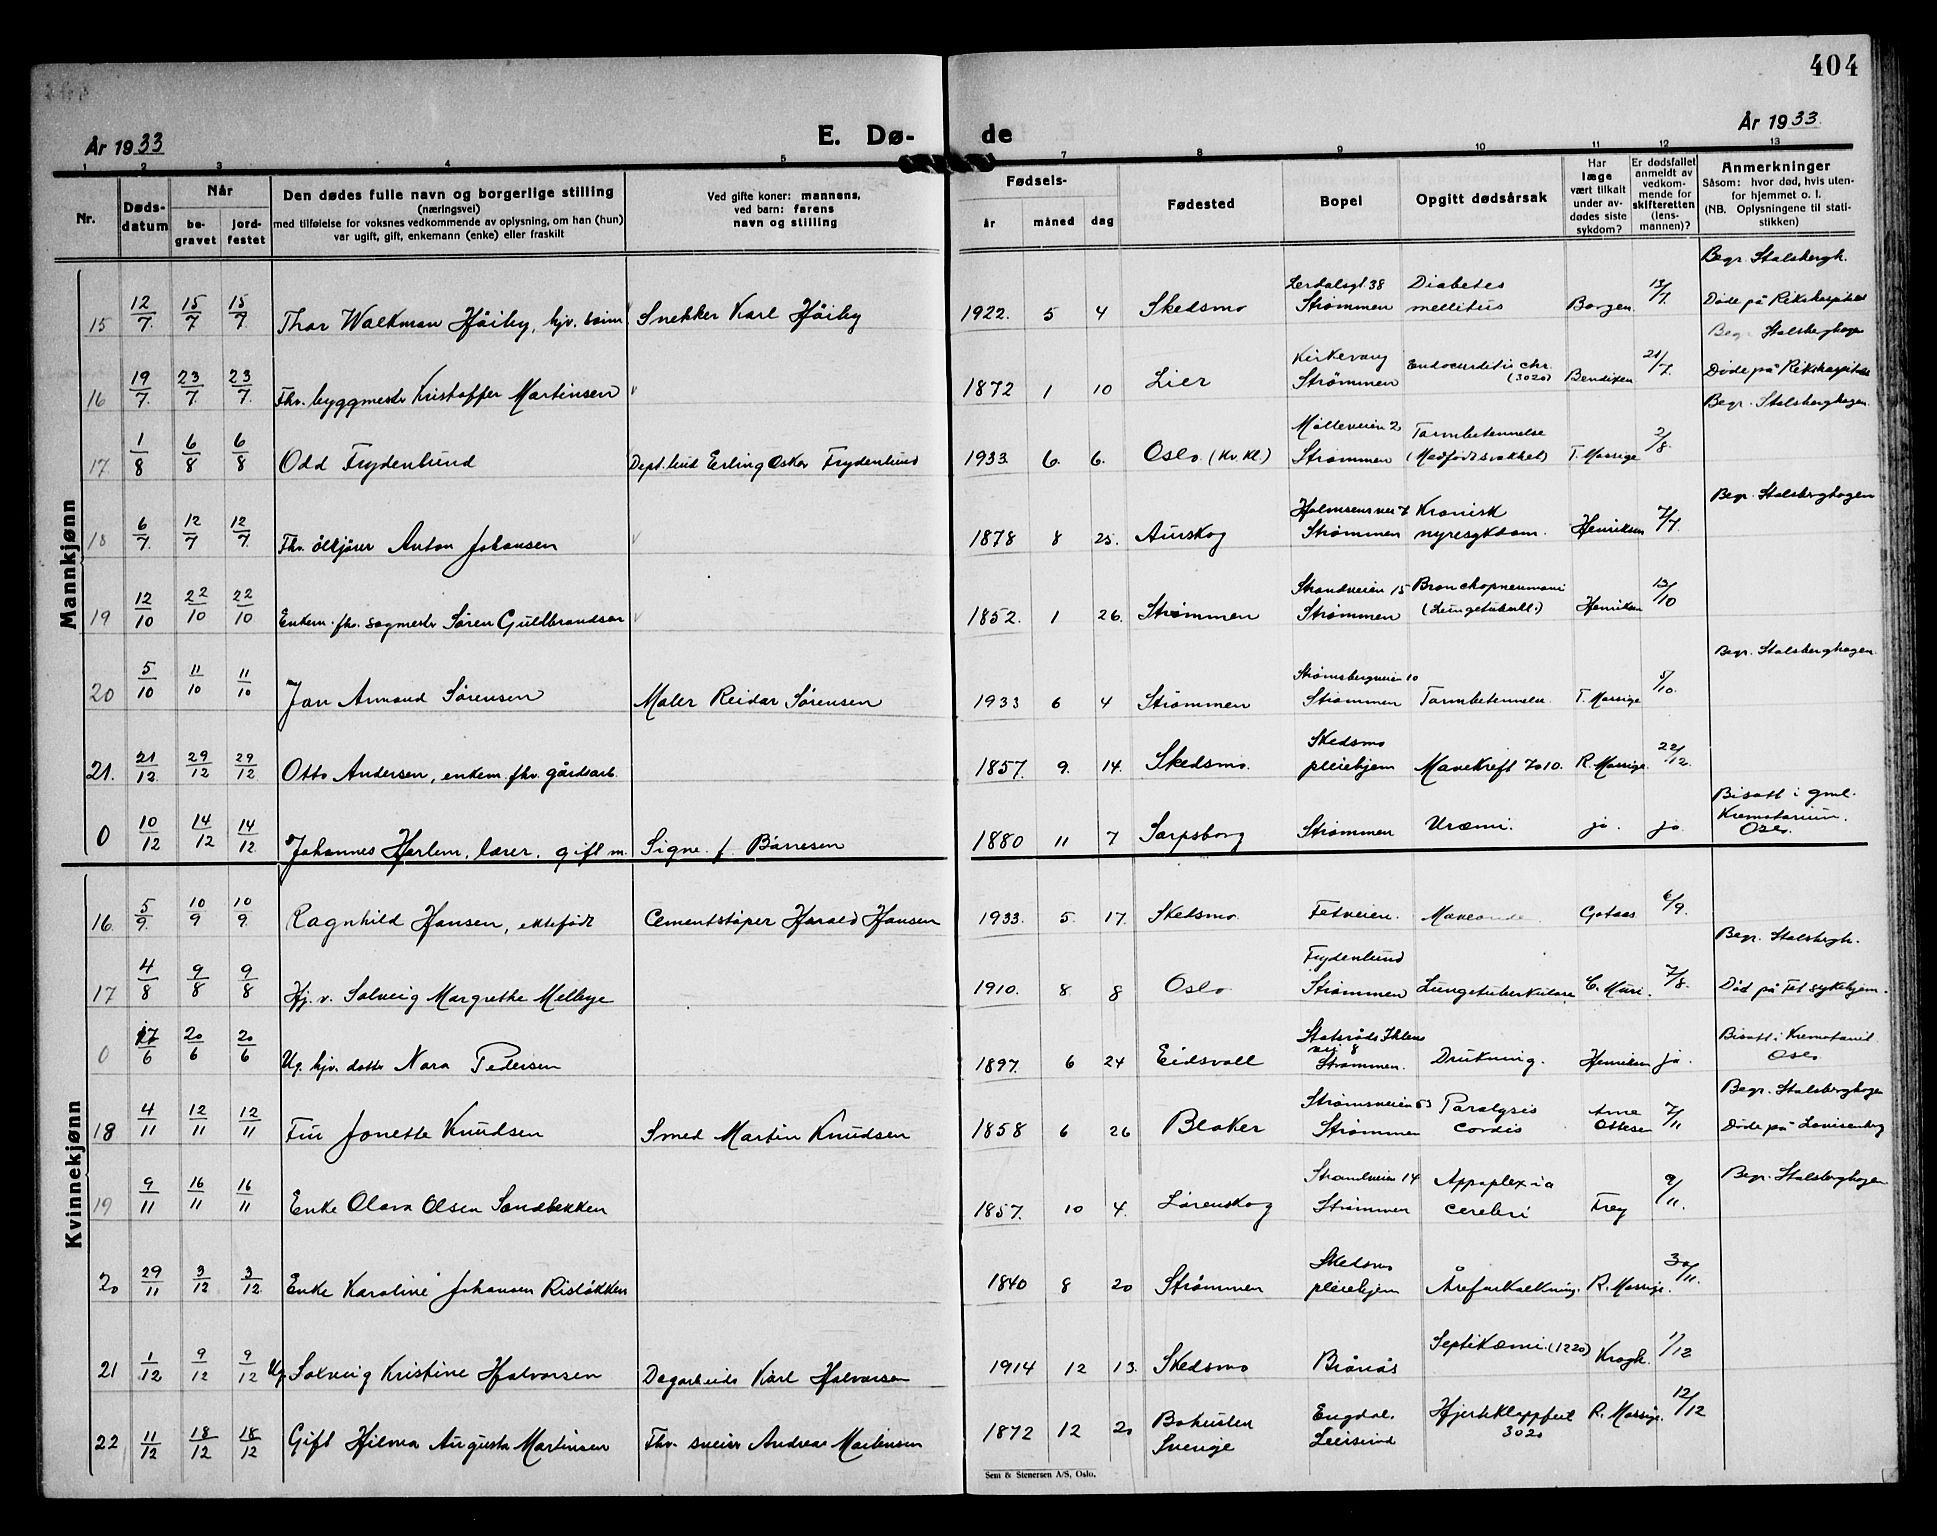 404
År 1933
E. Dø-
de
År 1933
1 2 3 4 5 7 8 9 10 11 12 13
Nr.
Døds-
datum
Når
be-
gravet
jord-
festet
Den dødes fulle navn og borgerlige stilling
(næringsvei)
med tilføielse for voksnes vedkommende av oplysning, om han (hun)
var ugift, gift, enkemann (enke) eller fraskilt
Ved gifte koner: mannens,
ved barn: farens
navn og stilling
Fødsels-
år måned dag
Fødested
Bopel
Opgitt dødsårsak
Har
læge
vært tilkalt
under av-
dødes siste
sykdom?
Er dødsfallet
anmeldt av
vedkom-
mende for
skifteretten
(lens-
mannen)?
Anmerkninger
Såsom: hvor død, hvis uten-
for hjemmet o. l.
(NB. Oplysningene til stati-
stikken)
Mannkjønn
Begr. Stalsbergh.
Lerdalsgt 38 Diabetes
15 12/7 15/7 15/7 Thor Walkman Høiby, hjv. sønn Snekker Karl Høiby 1922. 5 4 Skedsmo Strømmen mellitus Borgen 13/7. Døde på Rikshospitalet
Begr. Stalsberghagen
Kirkevang Endocarditis chr.
16 19/7. 23/7. 23/7. Fhv. byggmester Kristoffer Martinsen 1872 1 10 Lier Strømmen (3020) Bendixen 21/7. Døde på Rikshospitalet
Begr. Stalsberghagen.
Mølleveien 2 Tarmbetennelse
17. 1/8 6/8 6/8 Odd Frydenlund Dept.bud Erling Oskar Frydenlund 1933. 6. 6. Oslo (Kv. Kl.) Strømmen (Medfødt svakhet) T. Massige 2/8.
Begr. Stalsberghagen
Holmsensvei 7 Kronisk
18 6/7. 12/7 12/7. Fhv. ølkjører Anton Johansen 1878 8 25. Aurskog Strømmen nyresykdom. Henriksen 7/7.
Strandveien 15 Bronchopneumoni
19 12/10 22/10 22/10 Enkem. fhv. sagmester Søren Guldbrandsen 1852. 1 26. Strømmen Strømmen (Lungetuberk.) Henriksen 13/10
Begr. Stalsberghagen.
Strømsbergveien 10
20 5/10 11/10 11/10 Jan Armand Sørensen Maler Reidar Sørensen 1933 6 4 Strømmen Strømmen Tarmbetennelse. T. Massige 5/10.
Skedsmo
21. 21/12. 29/12 29/12 Otto Andersen, enkem. fhv. gårdsarb. 1857. 9. 14. Skedsmo. pleiehjem Mavekreft 7010. R. Massige. 22/12.
Bisatt i gml.
Krematorium.
Oslo.
0 10/12 14/12 14/12 Johannes Harlem, lærer, gift m. Signe f. Børresen 1880 11 7 Sarpsborg Strømmen Uræmi. ja. ja.
Kvinnekjønn
16. 5/9. 10/9 10/9. Ragnhild Hansen, ektefødt Cementstøper Harald Hansen 1933. 5. 17. Skedsmo. Fetveien. Maveonde. Gotaas 6/9.
Begr. Stalsbergh.
Frydenlund
17 4/8 9/8 9/8 Hj. v. Solveig Margrethe Melbye 1910. 8. 8 Oslo Strømmen Lungetuberkulose C. Muri. 7/8. Død på Fet sykehjem.
Statsråd Ihlens Bisatt i Krematoriet
vei 8 Oslo
0 17/6 20/6 20/6 Ug. hjv. datter Nora Pedersen 1897. 6 24 Eidsvoll Strømmen. Drukning. Henriksen ja.
Begr. Stalsberghagen
Strømsveien 53 Paralysis Arne
18 4/11 12/11 12/11 Fru Jonette Knudsen Smed Martin Knudsen 1858 6 26 Blaker Strømmen cordis Ottesen 7/11 Døde på Lovisenberg
Begr. Stalsberghagen
Strandveien 14 Appoplexia
19 9/11 16/11 16/11 Enke Olava Olsen Sandbekken 1857. 10 4. Lørenskog Strømmen cerebri Frey 9/11.
Skedsmo
20 29/11 3/12 3/12. Enke Karoline Johansen Risløkken 1840 8 20 Strømmen pleiehjem Åreforkalkning. R. Massige. 30/11.
Septikæmi (1220)
21 1/12 9/12 9/12 Ug. Solveig Kristine Halvorsen Dagarbeids Karl Halvorsen 1914 12 13. Skedsmo Brånås Krogh. 1/12
22 11/12 18/12 18/12 Gift Hilma Augusta Martinsen Fhv. sveiser Andreas Martinsen 1872 12 20 Bohuslen Engdal. Hjerteklappfeil R. Massige. 12/12
Sverige Leirsund 3020
Sem & Stenersen A/S, Oslo.